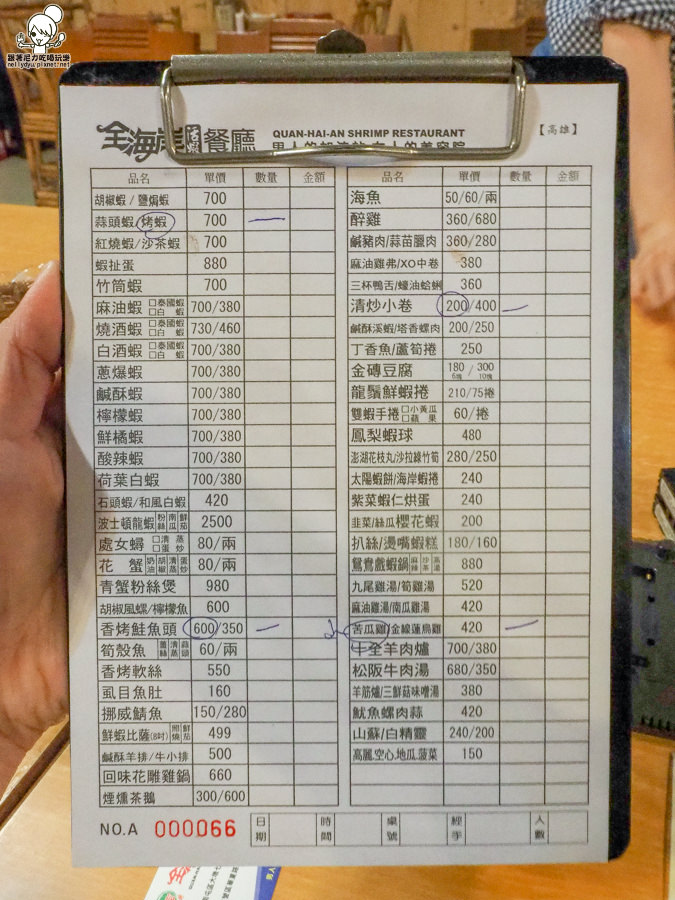 跟著尼力吃喝玩樂
nellydyu.pixnet.net
全海岸活蝦餐廳
QUAN-HAI-AN SHRIMP RESTAURANT
【高雄】
品名 單價 數量 金額
胡椒蝦/鹽焗蝦 700
蒜頭蝦/烤蝦 700 一
紅燒蝦/沙茶蝦 700
蝦扯蛋 880
竹筒蝦 700
麻油蝦 □泰國蝦 □白 蝦 700/380
燒酒蝦 □泰國蝦 □白 蝦 730/460
白酒蝦 □泰國蝦 □白 蝦 700/380
蔥爆蝦 700/380
鹹酥蝦 700/380
檸檬蝦 700/380
鮮橘蝦 700/380
酸辣蝦 700/380
荷葉白蝦 700/380
石頭蝦/和風白蝦 420
波士頓龍蝦 粉絲 南瓜 鮮茄 2500
處女蟳 □清 蒸 □蛋 炒 80/兩
花 蟹 奶油 胡椒 清蒸 蛋炒 80/兩
青蟹粉絲煲 980
胡椒風螺/檸檬魚 600
香烤鮭魚頭 600/350 一
筍殼魚 蔥 清蒸 蒜頭 60/兩
香烤軟絲 550
虱目魚肚 160
挪威鯖魚 150/280
鮮蝦比薩(8吋) 照燒 鮮茄 499
鹹酥羊排/牛小排 500
回味花雕雞鍋 660
煙燻茶鵝 300/600
品名 單價 數量 金額
海魚 50/60/兩
醉雞 360/680
鹹豬肉/蒜苗臘肉 360/280
麻油雞弗/XO中卷 380
三杯鴨舌/蠔油蛤蜊 360
清炒小卷 200/400 一
鹹酥溪蝦/塔香螺肉 200/250
丁香魚/蘆筍捲 250
金磚豆腐 180/300 6塊 10塊
龍鬚鮮蝦捲 210/75捲
雙蝦手捲 □小黃瓜 □蘋 果 60/捲
鳳梨蝦球 480
澎湖花枝丸/沙拉綠竹筍 280/250
太陽蝦餅/海岸蝦捲 240
紫菜蝦仁烘蛋 240
韭菜/絲瓜櫻花蝦 200
扒絲/燙嘴蝦糕 180/160
鴛鴦戲蝦鍋 麻辣 沙茶 高湯 880
九尾雞湯/筍雞湯 520
麻油雞湯/南瓜雞湯 420
小 苦瓜雞/金線蓮烏雞 420 一
牛全羊肉爐 700/380
松阪牛肉湯 680/350
羊筋爐/三鮮菇味噌湯 380
魷魚螺肉蒜 420
山蘇/白精靈 240/200
高麗.空心.地瓜.菠菜 150
NO.A 000066 日期 時間 桌號 經手 人數